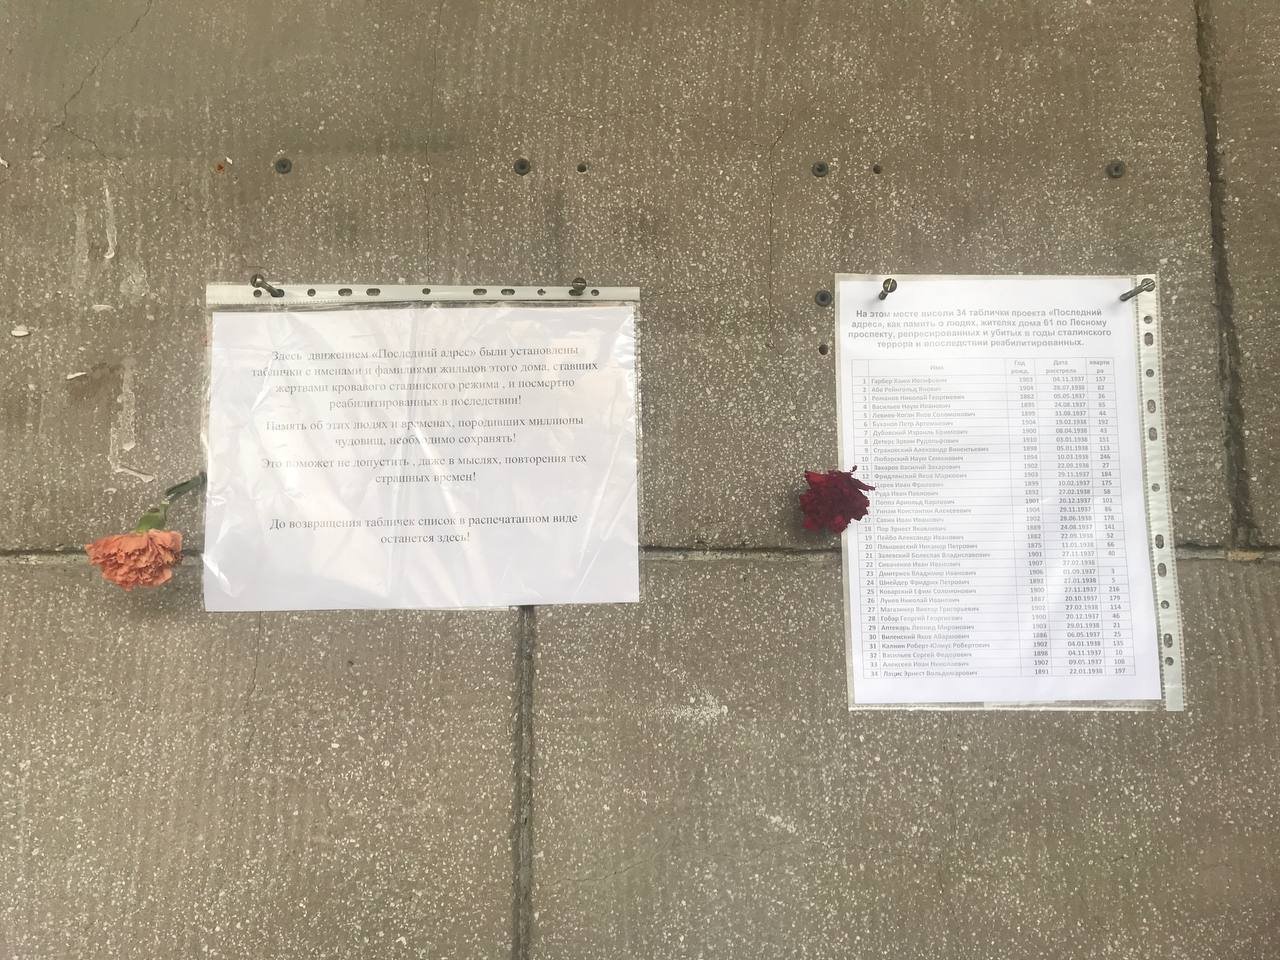 Здесь движением «Последний адрес» были установлены
таблички с именами и фамилиями жильцов этого дома, ставших
жертвами кровавого сталинского режима , и посмертно
реабилитированных в последствии!
Память об этих людях и временах, породивших миллионы
чудовищ, необходимо сохранять!
Это поможет не допустить , даже в мыслях, повторения тех
страшных времен!
До возвращения табличек список в распечатанном виде
останется здесь!
На этом месте висели 34 таблички проекта «Последний
адрес», как память о людях, жителях дома 61 по Лесному
проспекту, репрессированных и убитых в годы сталинского
террора и впоследствии реабилитированных.
Имя Год рожд. Дата расстрела квартира
1 Гарбер Хаим Иосифович 1903 04.11.1937 157
2 Абе Рейнгольд Янович 1904 28.07.1938 82
3 Романов Николай Георгиевич 1882 05.05.1937 26
4 Васильев Наум Иванович 1895 24.08.1937 65
5 Левиев-Коган Яков Соломонович 1899 31.08.1937 44
6 Буханов Петр Артамонович 1904 19.02.1938 192
7 Дубовский Израиль 1900 08.04.1938 43
8 Детерс Эрвин Рудольфович 1910 03.01.1938 151
9 Страховский Александр Викентьевич 1898 05.03.1938 113
10 Любарский Наум Семенович 1894 10.03.1938 246
Захаров Василий Захарович 1902 22.09.1938 27
12 Фридлянский Яков Маркович 1903 29.11.1937 184
Царев Иван Фролович 1899 10.02.1937 175
Руда Иван Павлович 1892 27.02.1938 58
Поппэ Арнольд Карлович 1901 20.12.1937 101
Уннам Константин Алексеевич 1904 29.11.1937 86
17 Савин Иван Иванович 1902 28.06.1938 178
18 Пор Эрнест Яковлевич 1889 24.08.1937 141
19 Пейбо Александр Иванович 1882 22.09.1938 52
20 Никанор Петрович 1875 11.01.1938 66
21 Залевский Болеслав Владиславович 1901 27.11.1937 40
22 Сиваченко Иван Иванович 1907 27.02.1938
23 Дмитриев Владимир Иванович 1906 01.09.1937 3
24 Шнейдер Фридрих Петрович 1892 27.01.1938 5
25 Коварский Ефим Соломонович 1900 27.11.1937 216
26 Лунев Николай Иванович 1887 20.10.1937 179
27 Магазинер Виктор Григорьевич 1902 27.02.1938 114
28 Гобар Георгий Георгиевич 1900 20.12.1937 46
29 Аптекарь Леонид Миронович 1903 29.01.1938 21
30 Виленский Яков Абрамович 1886 06.05.1937 25
31 Калнин Роберт-Юлиус Робертович 1902 04.01.1938 135
32 Васильев Сергей Федорович 1898 04.11.1937 10
33 Алексеев Иван Николаевич 1902 09.05.1937 108
34 Лацис Эрнест Вольдемарович 1891 22.01.1938 197